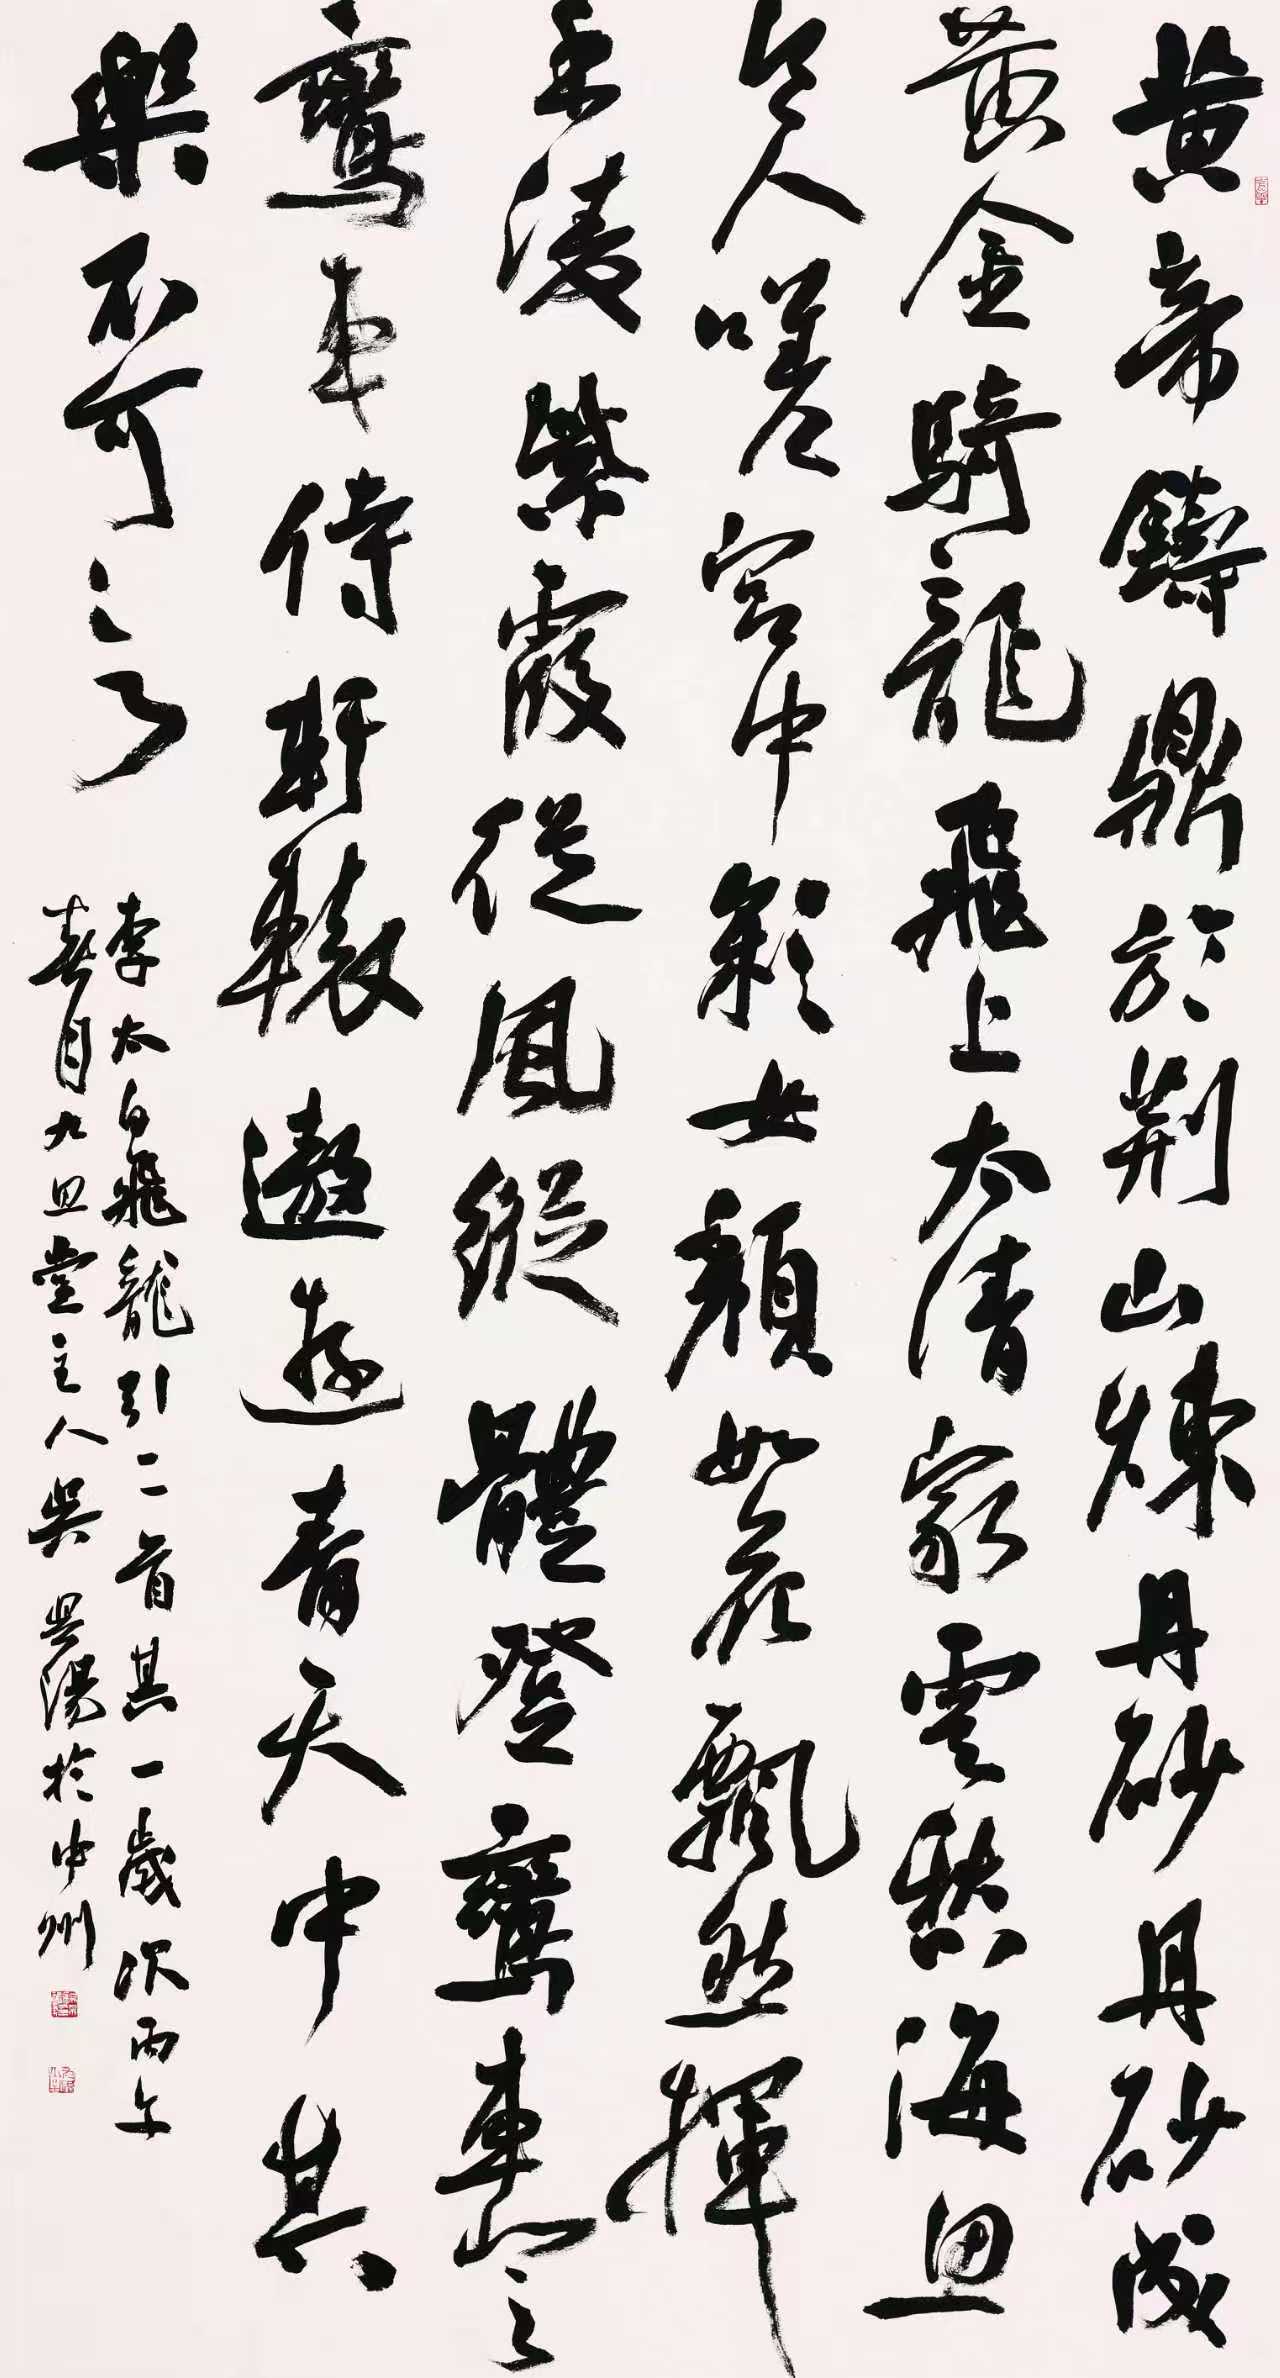 黃帝鑄鼎於荆山煉丹砂丹砂成
黃金騎龍飛上太清家雲愁海思
令人嗟宮中彩女顏如花飄然揮
手凌紫霞從風縱體登鸞車登
鸞車侍軒轅遨遊青天中其
樂不可言
李太白飛龍引二首其一歲次丙午
春月九思堂主人吳於中州